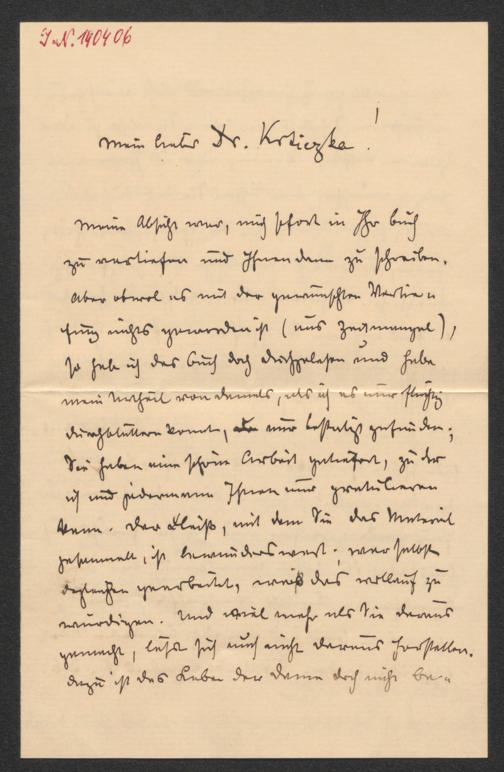 I.N. 140406
Mein lieber Dr. Krticzka!
Meine Absicht war, mich sofort in Ihr Buch
zu vertiefen und Ihnen dann zu schreiben.
Aber obwol es mit der gewünschten Vertie-
fung nichts geworden ist (aus Zeitmangel),
so habe ich das Buch doch durchgelesen und habe
mein Urtheil von damals, als ich es nur flüchtig
durchblättern konnte, nur bestätigt gefunden:
Sie haben eine schöne Arbeit geliefert, zu der
ich und jedermann Ihnen nur gratulieren
kann. Der Fleiß, mit dem Sie das Material
gesammelt, ist bewundernswert; wer selbst
dergleichen gearbeitet, weiß das vollauf zu
würdigen. Und viel mehr als Sie daraus
gemacht, lässt sich auch nicht daraus herstellen.
Dazu ist das Leben der Dame doch nicht be-